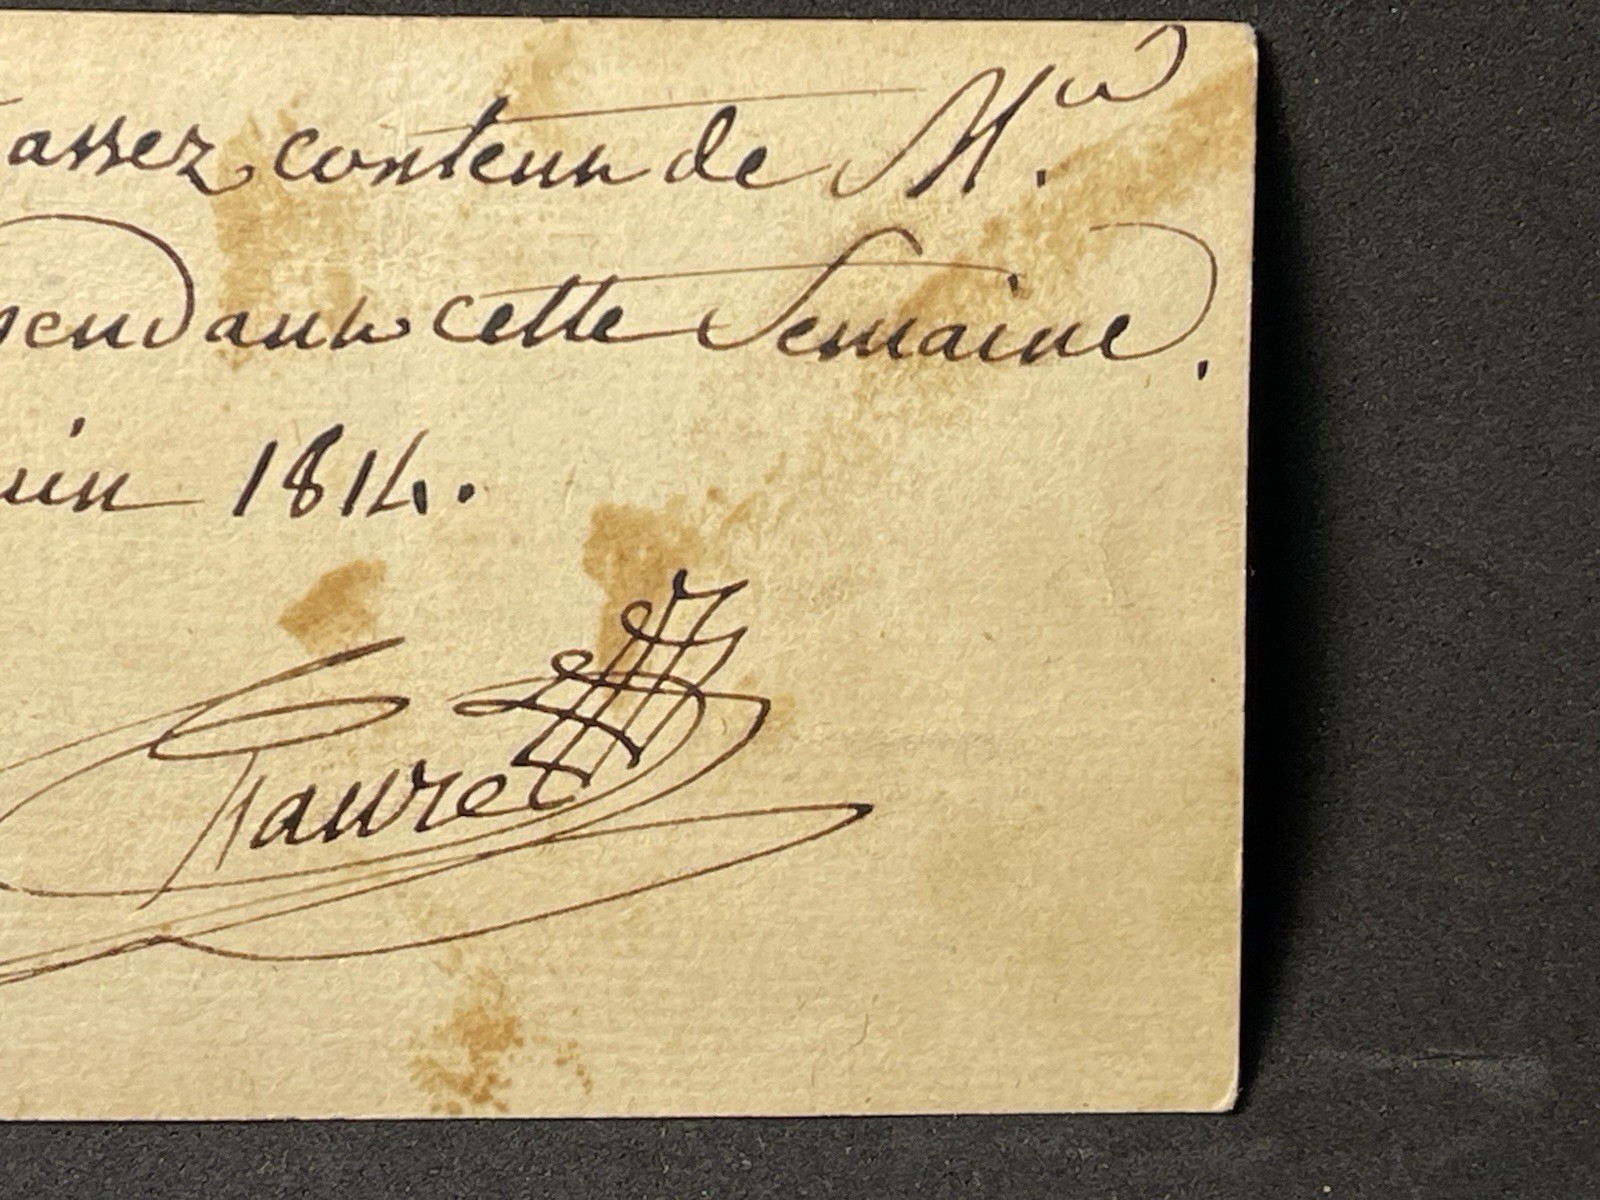 assez content de M.
pendant cette Semaine.
uin 1814.
Fauret